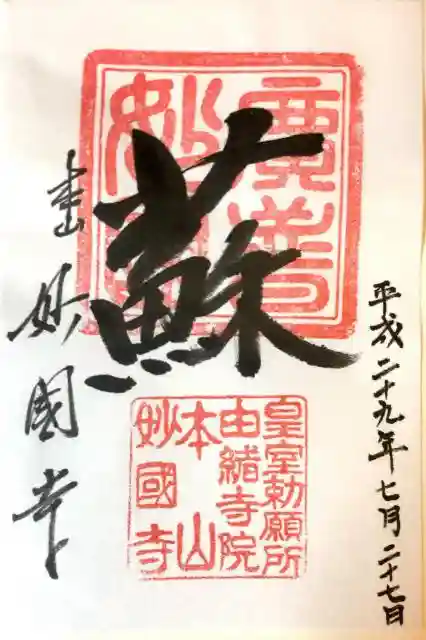 平成二十九年七月二十七日
蘇
廣普
妙國
皇室勅願所
由緒寺院
本山
妙國寺
妙國寺